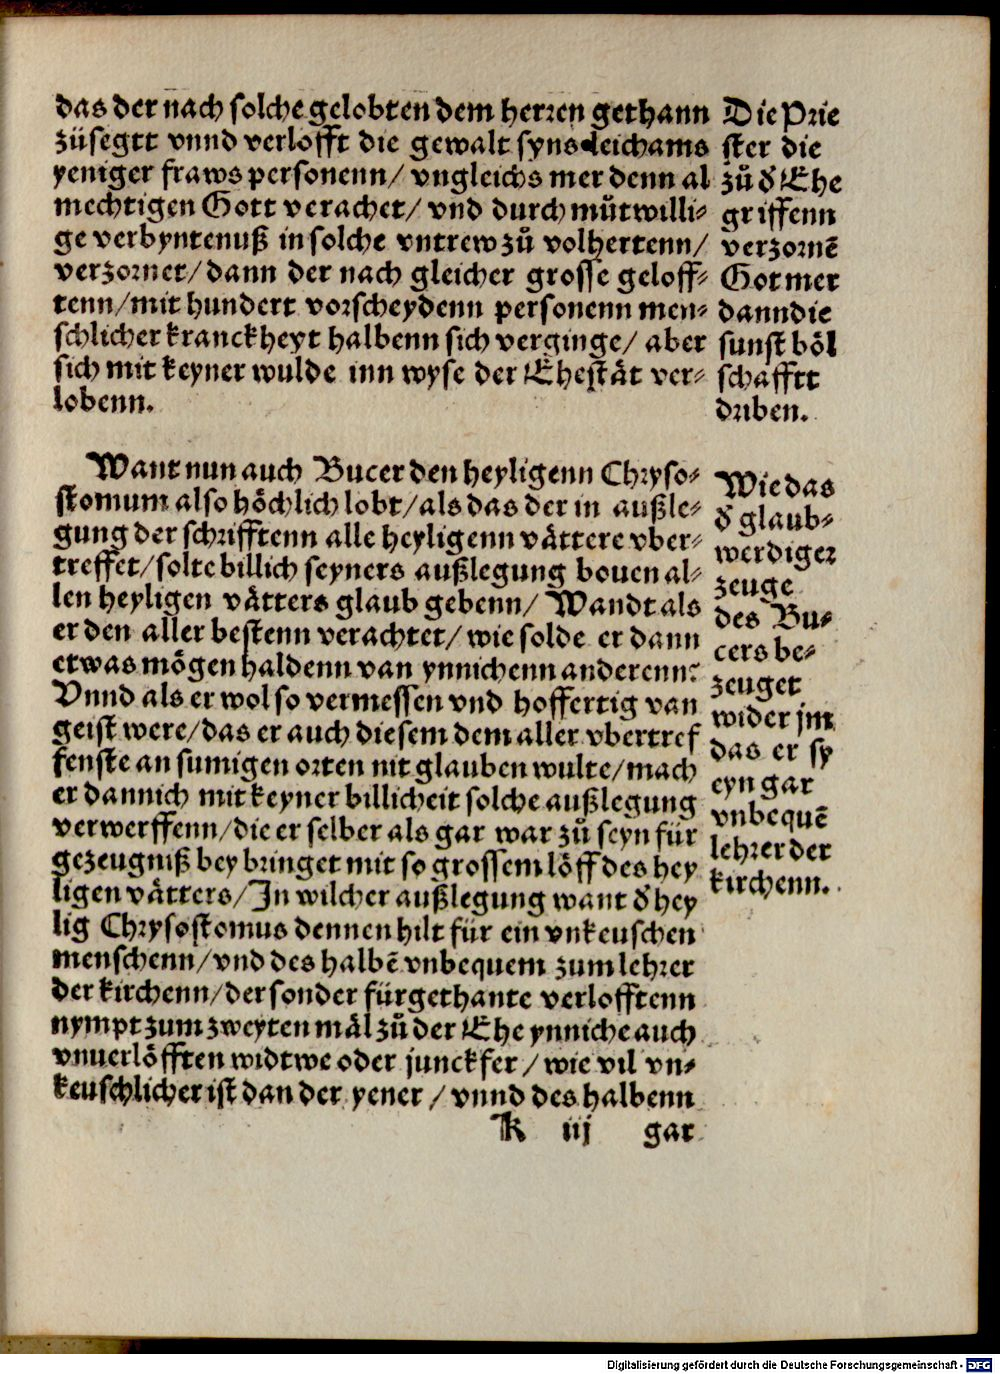 das der nach solche gelobten dem herren gethann
zůsegtt vnnd verlofft die gewalt syns leichams
yeniger fraws personenn/ vngleichs mer denn al
mechtigen Gott verachet/ vnd durch můtwilli⸗
ge verbyntenuß in solche vntrew zů volhertenn/
verzornet/ dann der nach gleicher grosse geloff⸗
tenn/ mit hundert vorscheydenn personenn men⸗
schlicher kranckheyt halbenn sich verginge/ aber
sich mit keyner wulde inn wyse der Eheståt ver⸗
lobenn.
Die Prie
ster die
zů d̕ Ehe
griffenn
verzornē
Got mer
dann die
sunst böl
schafftt
driben.
Want nun auch Bucer den heyligenn Chryso⸗
stomum also höchlich lobt/ als das der in außle⸗
gung der schrifftenn alle heyligenn våttere vber⸗
treffet/ solte billich seyners außlegung bouen al⸗
len heyligen våtters glaub gebenn/ Wandt als
er den aller bestenn verachtet/ wie solde er dann
etwas mögen haldenn van ynnichenn anderenn?
Vnnd als er wol so vermessen vnd hoffertig van
geist were/ das er auch diesem dem aller vbertref
fenste an sumigen orten nit glauben wulte/ mach
er dannich mit keyner billicheit solche außlegung
verwerffenn/ die er selber als gar war zů seyn für
gezeugniß beybringet mit so grossem löff des hey
ligen våtters/ In wilcher außlegung want d̕ hey
lig Chrysostomus dennen hilt für ein vnkeuschen
menschenn/ vnd des halbē vnbequem zum lehrer
der kirchenn/ der sonder fürgethante verlofftenn
nympt zum zweyten mål zů der Ehe ynniche auch
vnuerlöfften widtwe oder junckfer/ wie vil vn⸗
keuschlicher ist dan der yener/ vnnd des halbenn
Wie das
d̕ glaub⸗
werdiger
zeuge
des Bu⸗
cers be⸗
zeuget
wider jm
das er sy
eyn gar
vnbequē
lehrer der
kirchenn.
K iij gar
Digitalisierung gefördert durch die Deutsche Forschungsgemeinschaft - DFG